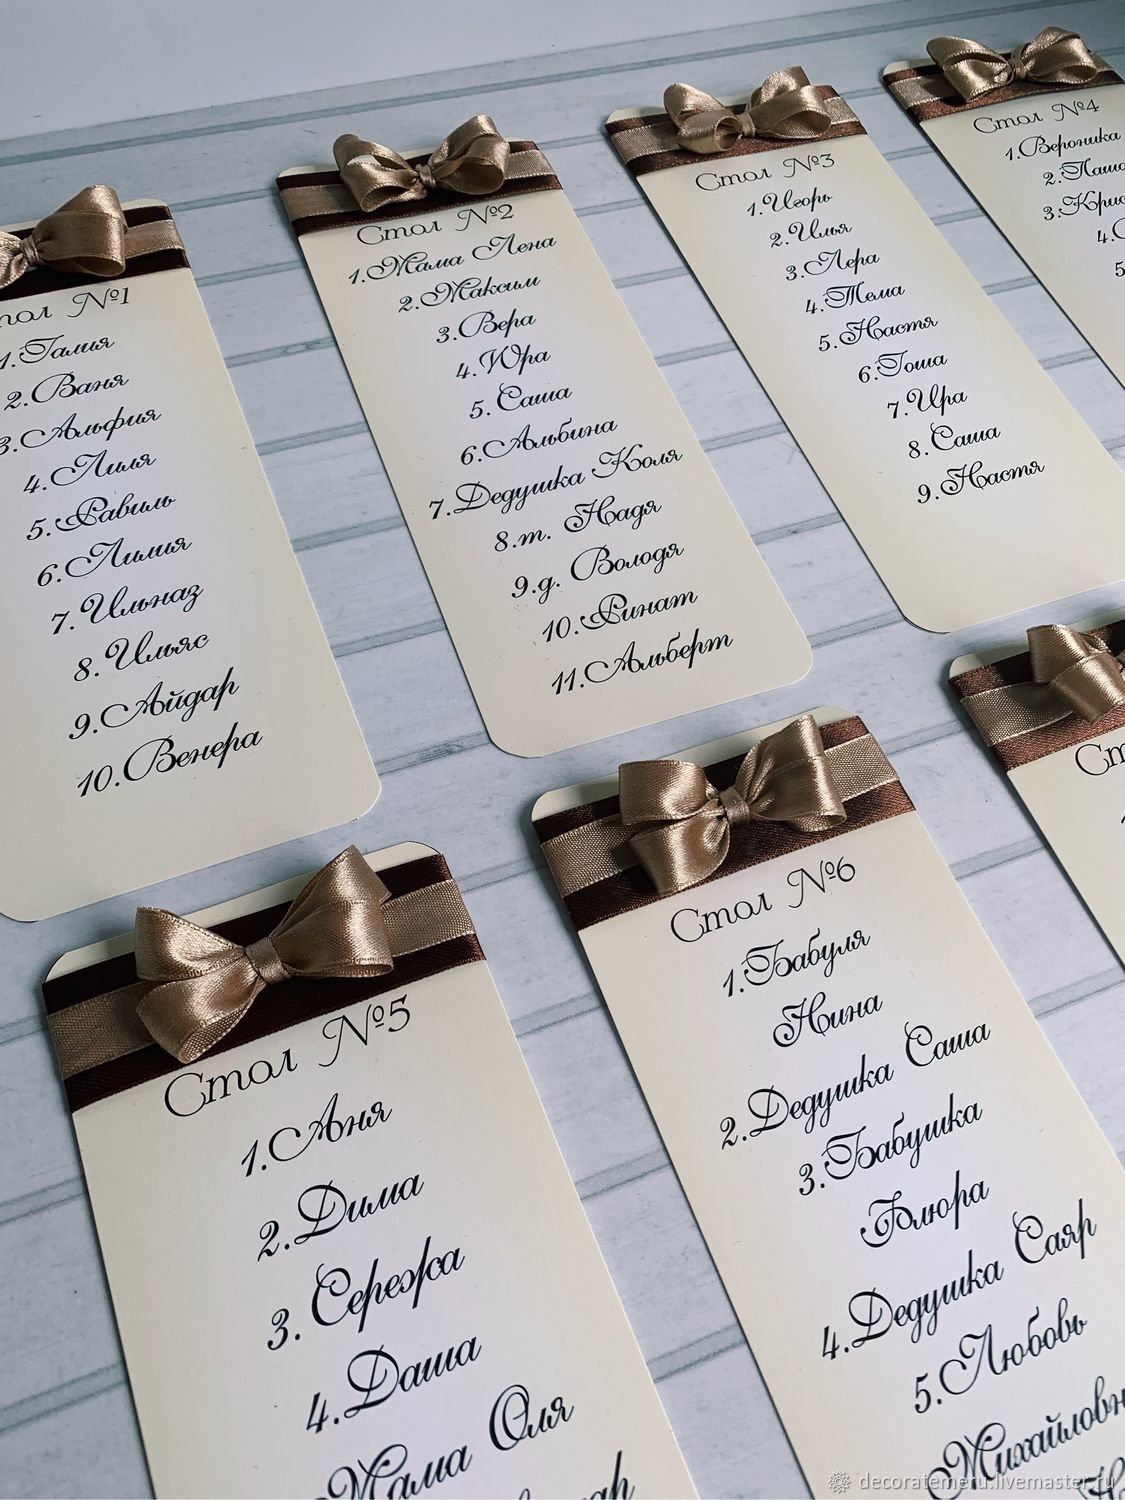 Стол №1
1.Галия
2.Ваня
3.Альфия
4.Лиля
5.Равиль
6.Лилия
7.Ильназ
8.Ильяс
9.Айдар
10.Венера
Стол №2
1.Мама Лена
2.Максим
3.Вера
4.Юра
5.Саша
6.Альбина
7.Дедушка Коля
8.т. Надя
9.д. Володя
10.Ринат
11.Альберт
Стол №3
1.Игорь
2.Илья
3.Лера
4.Тема
5.Настя
6.Гоша
7.Ира
8.Саша
9.Настя
Стол №4
1.Вероника
2.Паша
3.Крис
4.
5
Стол №5
1.Аня
2.Дима
3.Сережа
4.Даша
Мама Оля
Стол №6
1.Бабуля
Нина
2.Дедушка Саша
3.Бабушка
Флюра
4.Дедушка Саяр
5.Любовь
Михайловн
Ст
decoratemeru.livemaster.ru